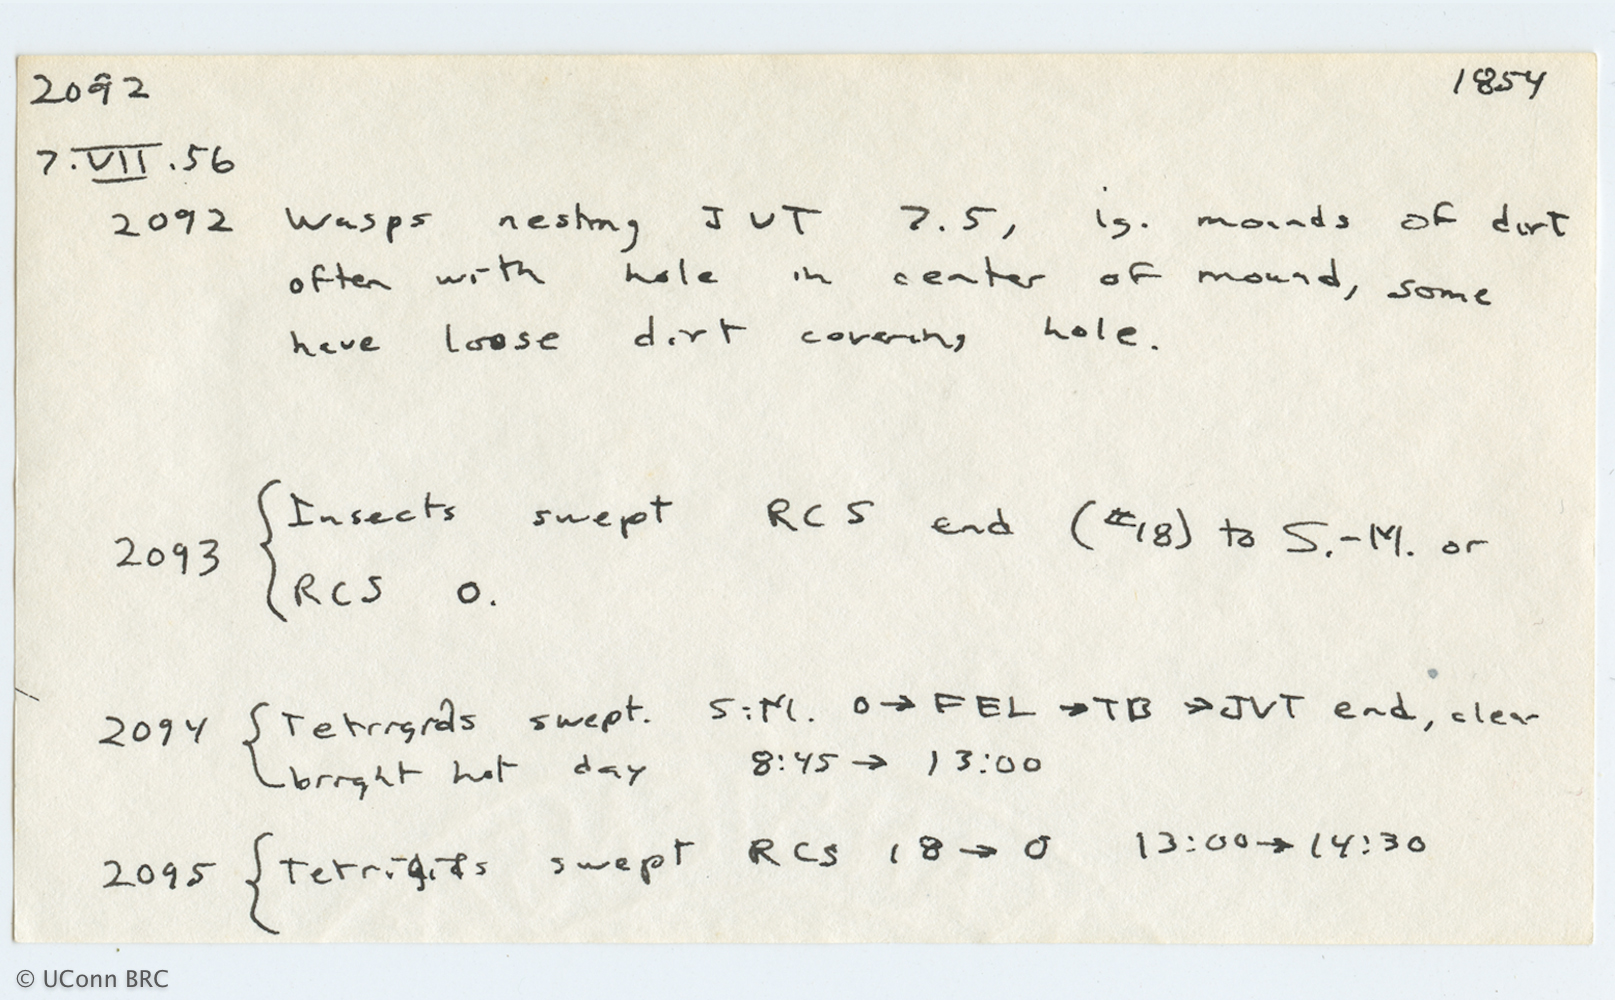 2092 1854
7.VII.56
2092 Wasps nesting JVT 7.5, ig. mounds of dirt
often with hole in center of mound, some
have loose dirt covering hole.
2093 Insects swept RCS end (#18) to S.-M. or
RCS 0.
2094 Tetrigids swept. S.-M. 0→FEL→TB→JVT end, clear
bright hot day 8:45→ 13:00
2095 Tetrigids swept RCS 18→0 13:00→14:30
© UConn BRC